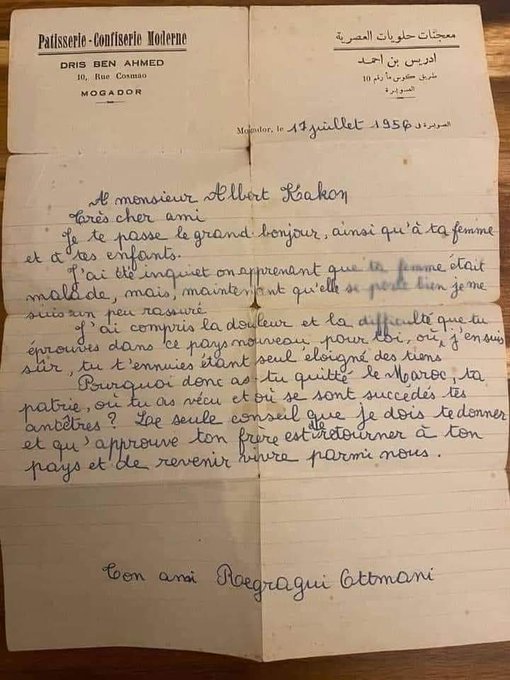 Patisserie-Confiserie Moderne
DRIS BEN AHMED
10, Rue Cosmao
MOGADOR
معجنات حلويات العصرية
ادريس بن احمد
طريق كوس مأ رقم 10
الصويرة
Mogador, le 17 juillet 1956 الصويرة في
A monsieur Albert Kakon
Très cher ami
Je te passe le grand bonjour, ainsi qu'à ta femme
et à tes enfants.
J'ai été inquiet on apprenant que ta femme était
malade, mais, maintenant qu'elle se porte bien je me
suis un peu rassuré.
J'ai compris la douleur et la difficulté que tu
éprouves dans ce pays nouveau, pour toi, où, j'en suis
sûr, tu t'ennuies étant seul éloigné des tiens
Pourquoi donc as-tu quitté le Maroc, ta
patrie, où tu as vécu et où se sont succedés tes
ancêtres? Le seule conseil que je dois te donner
et qu'approuve ton frère est de retourner à ton
pays et de revenir vivre parmi nous.
Ton ami Raegragui Ottmani